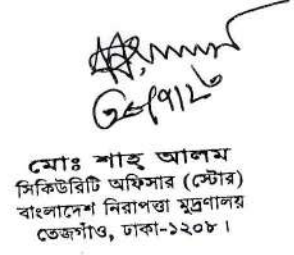 মোঃ শাহ আলম
সিকিউরিটি অফিসার (স্টোর)
বাংলাদেশ নিরাপত্তা মুদ্রণালয়
তেজগাঁও, ঢাকা-১২০৮।